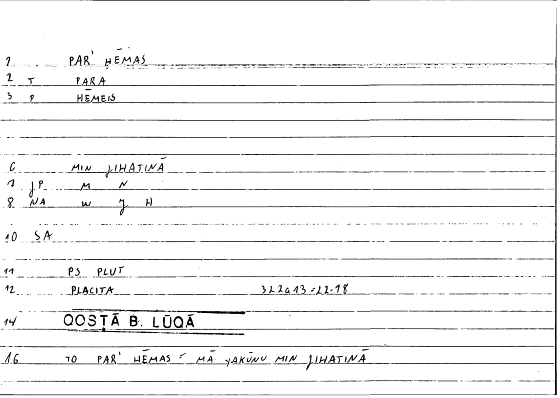 1 PAR' HĒMAS
2 T PARA
3 P HĒMEIS
6 MIN ǦIHATINĀ
7 ǦP M N
8 NA W Ǧ H
10 SA
11 PS PLUT
12 PLACITA 322a13-22.18
14 QOSṬĀ B. LŪQĀ
16 TO PAR' HĒMAS = MĀ YAKŪNU MIN ǦIHATINĀ